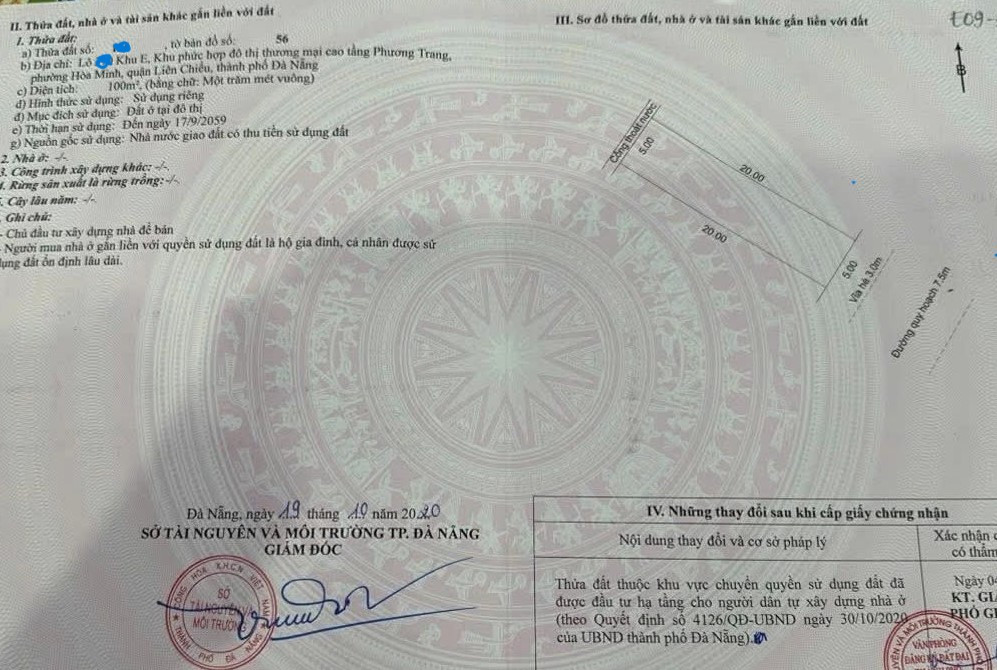 II. Thửa đất, nhà ở và tài sản khác gắn liền với đất
1. Thửa đất:
a) Thửa đất số: , tờ bản đồ số: 56
b) Địa chỉ: Lô Khu E, Khu phức hợp đô thị thương mại cao tầng Phương Trang,
phường Hòa Minh, quận Liên Chiểu, thành phố Đà Nẵng
c) Diện tích: 100m², (bằng chữ: Một trăm mét vuông)
d) Hình thức sử dụng: Sử dụng riêng
đ) Mục đích sử dụng: Đất ở tại đô thị
e) Thời hạn sử dụng: Đến ngày 17/9/2059
g) Nguồn gốc sử dụng: Nhà nước giao đất có thu tiền sử dụng đất
2. Nhà ở: -/-
3. Công trình xây dựng khác: -/-
4. Rừng sản xuất là rừng trồng: -/-
. Cây lâu năm: -/-
. Ghi chú:
- Chủ đầu tư xây dựng nhà để bán
- Người mua nhà ở gắn liền với quyền sử dụng đất là hộ gia đình, cá nhân được sử
dụng đất ổn định lâu dài.
Đà Nẵng, ngày 19 tháng 10 năm 2020
SỞ TÀI NGUYÊN VÀ MÔI TRƯỜNG TP. ĐÀ NẴNG
GIÁM ĐỐC
CỘNG HÒA X.H.C.N VIỆT NAM
SỞ
TÀI NGUYÊN VÀ
MÔI TRƯỜNG
THÀNH PHỐ ĐÀ NẴNG
III. Sơ đồ thửa đất, nhà ở và tài sản khác gắn liền với đất
E09-
B
Cống thoát nước
5.00
20.00
20.00
5.00
Vỉa hè 3.0m
Đường quy hoạch 7.5m
IV. Những thay đổi sau khi cấp giấy chứng nhận
Nội dung thay đổi và cơ sở pháp lý
Xác nhận c
có thẩm
Thửa đất thuộc khu vực chuyển quyền sử dụng đất đã
được đầu tư hạ tầng cho người dân tự xây dựng nhà ở
(theo Quyết định số 4126/QĐ-UBND ngày 30/10/2020
của UBND thành phố Đà Nẵng).
Ngày 04
KT. GI
PHÓ GI
VĂN PHÒNG
ĐĂNG KÝ ĐẤT ĐAI